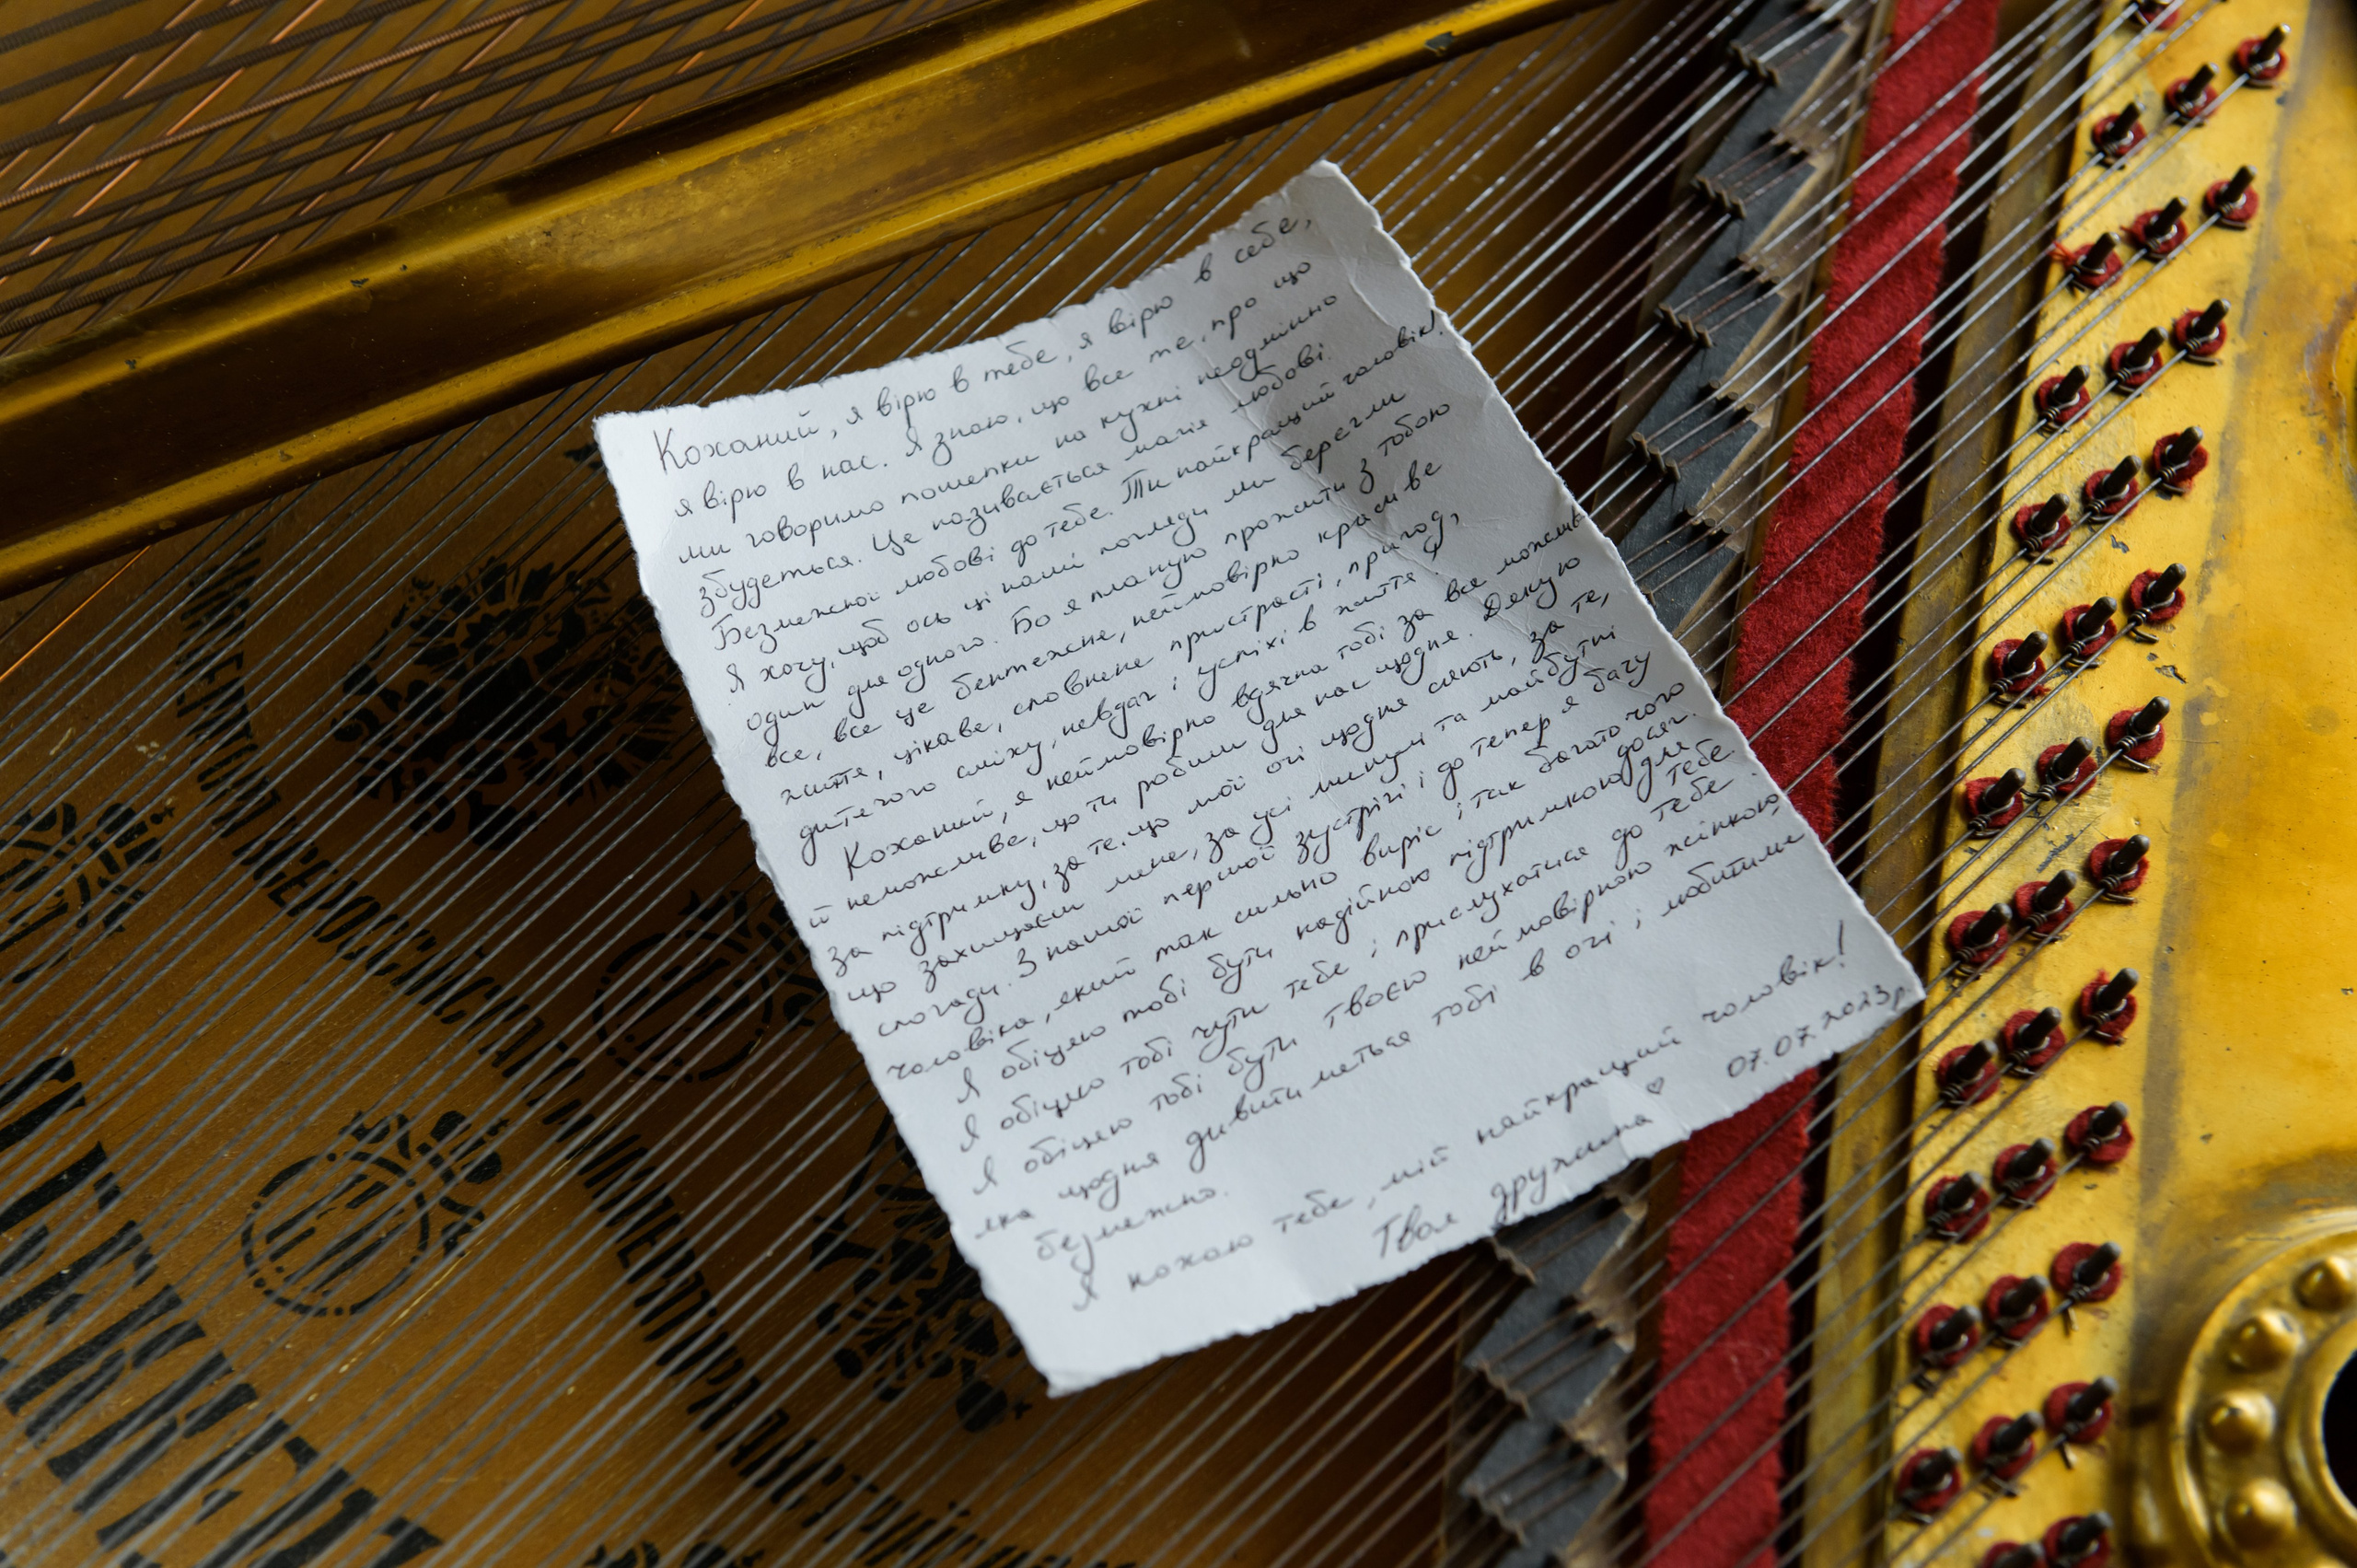 Коханий, я вірю в тебе, я вірю в себе,
я вірю в нас. Я знаю, що все те, про що
ми говоримо пошепки на кухні неодмінно
збудеться. Це називається магія любові.
Безмежної любові до тебе. Ти найкращий чоловік!
Я хочу, щоб ось ці наші погляди ми берегли
один для одного. Бо я планую прожити з тобою
все, все це бентежне, неймовірно красиве
життя, цікаве, сповнене пристрасті, пригод,
дитячого сміху, невдач і успіхів в житті!
Коханий, я неймовірно вдячна тобі за все можливе
й неможливе, що ти робиш для нас щодня. Дякую
за підтримку, за те, що мої очі щодня сяють, за те,
що захищаєш мене, за усі минулі та майбутні
спогади. З нашої першої зустрічі і до тепер я бачу
чоловіка, який так сильно виріс і так багато чого досяг.
Я обіцяю тобі бути надійною підтримкою для тебе.
Я обіцяю тобі чути тебе і прислухатися до тебе.
Я обіцяю тобі бути твоєю неймовірною жінкою,
яка щодня дивитиметься тобі в очі і любитиме
безмежно.
Я кохаю тебе, мій найкращий чоловік!
Твоя дружина ♡ 07.07.2023р.